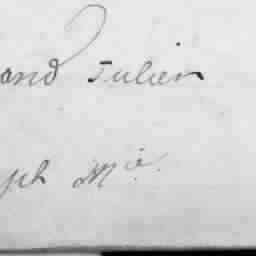 and Julien
ph Mie.